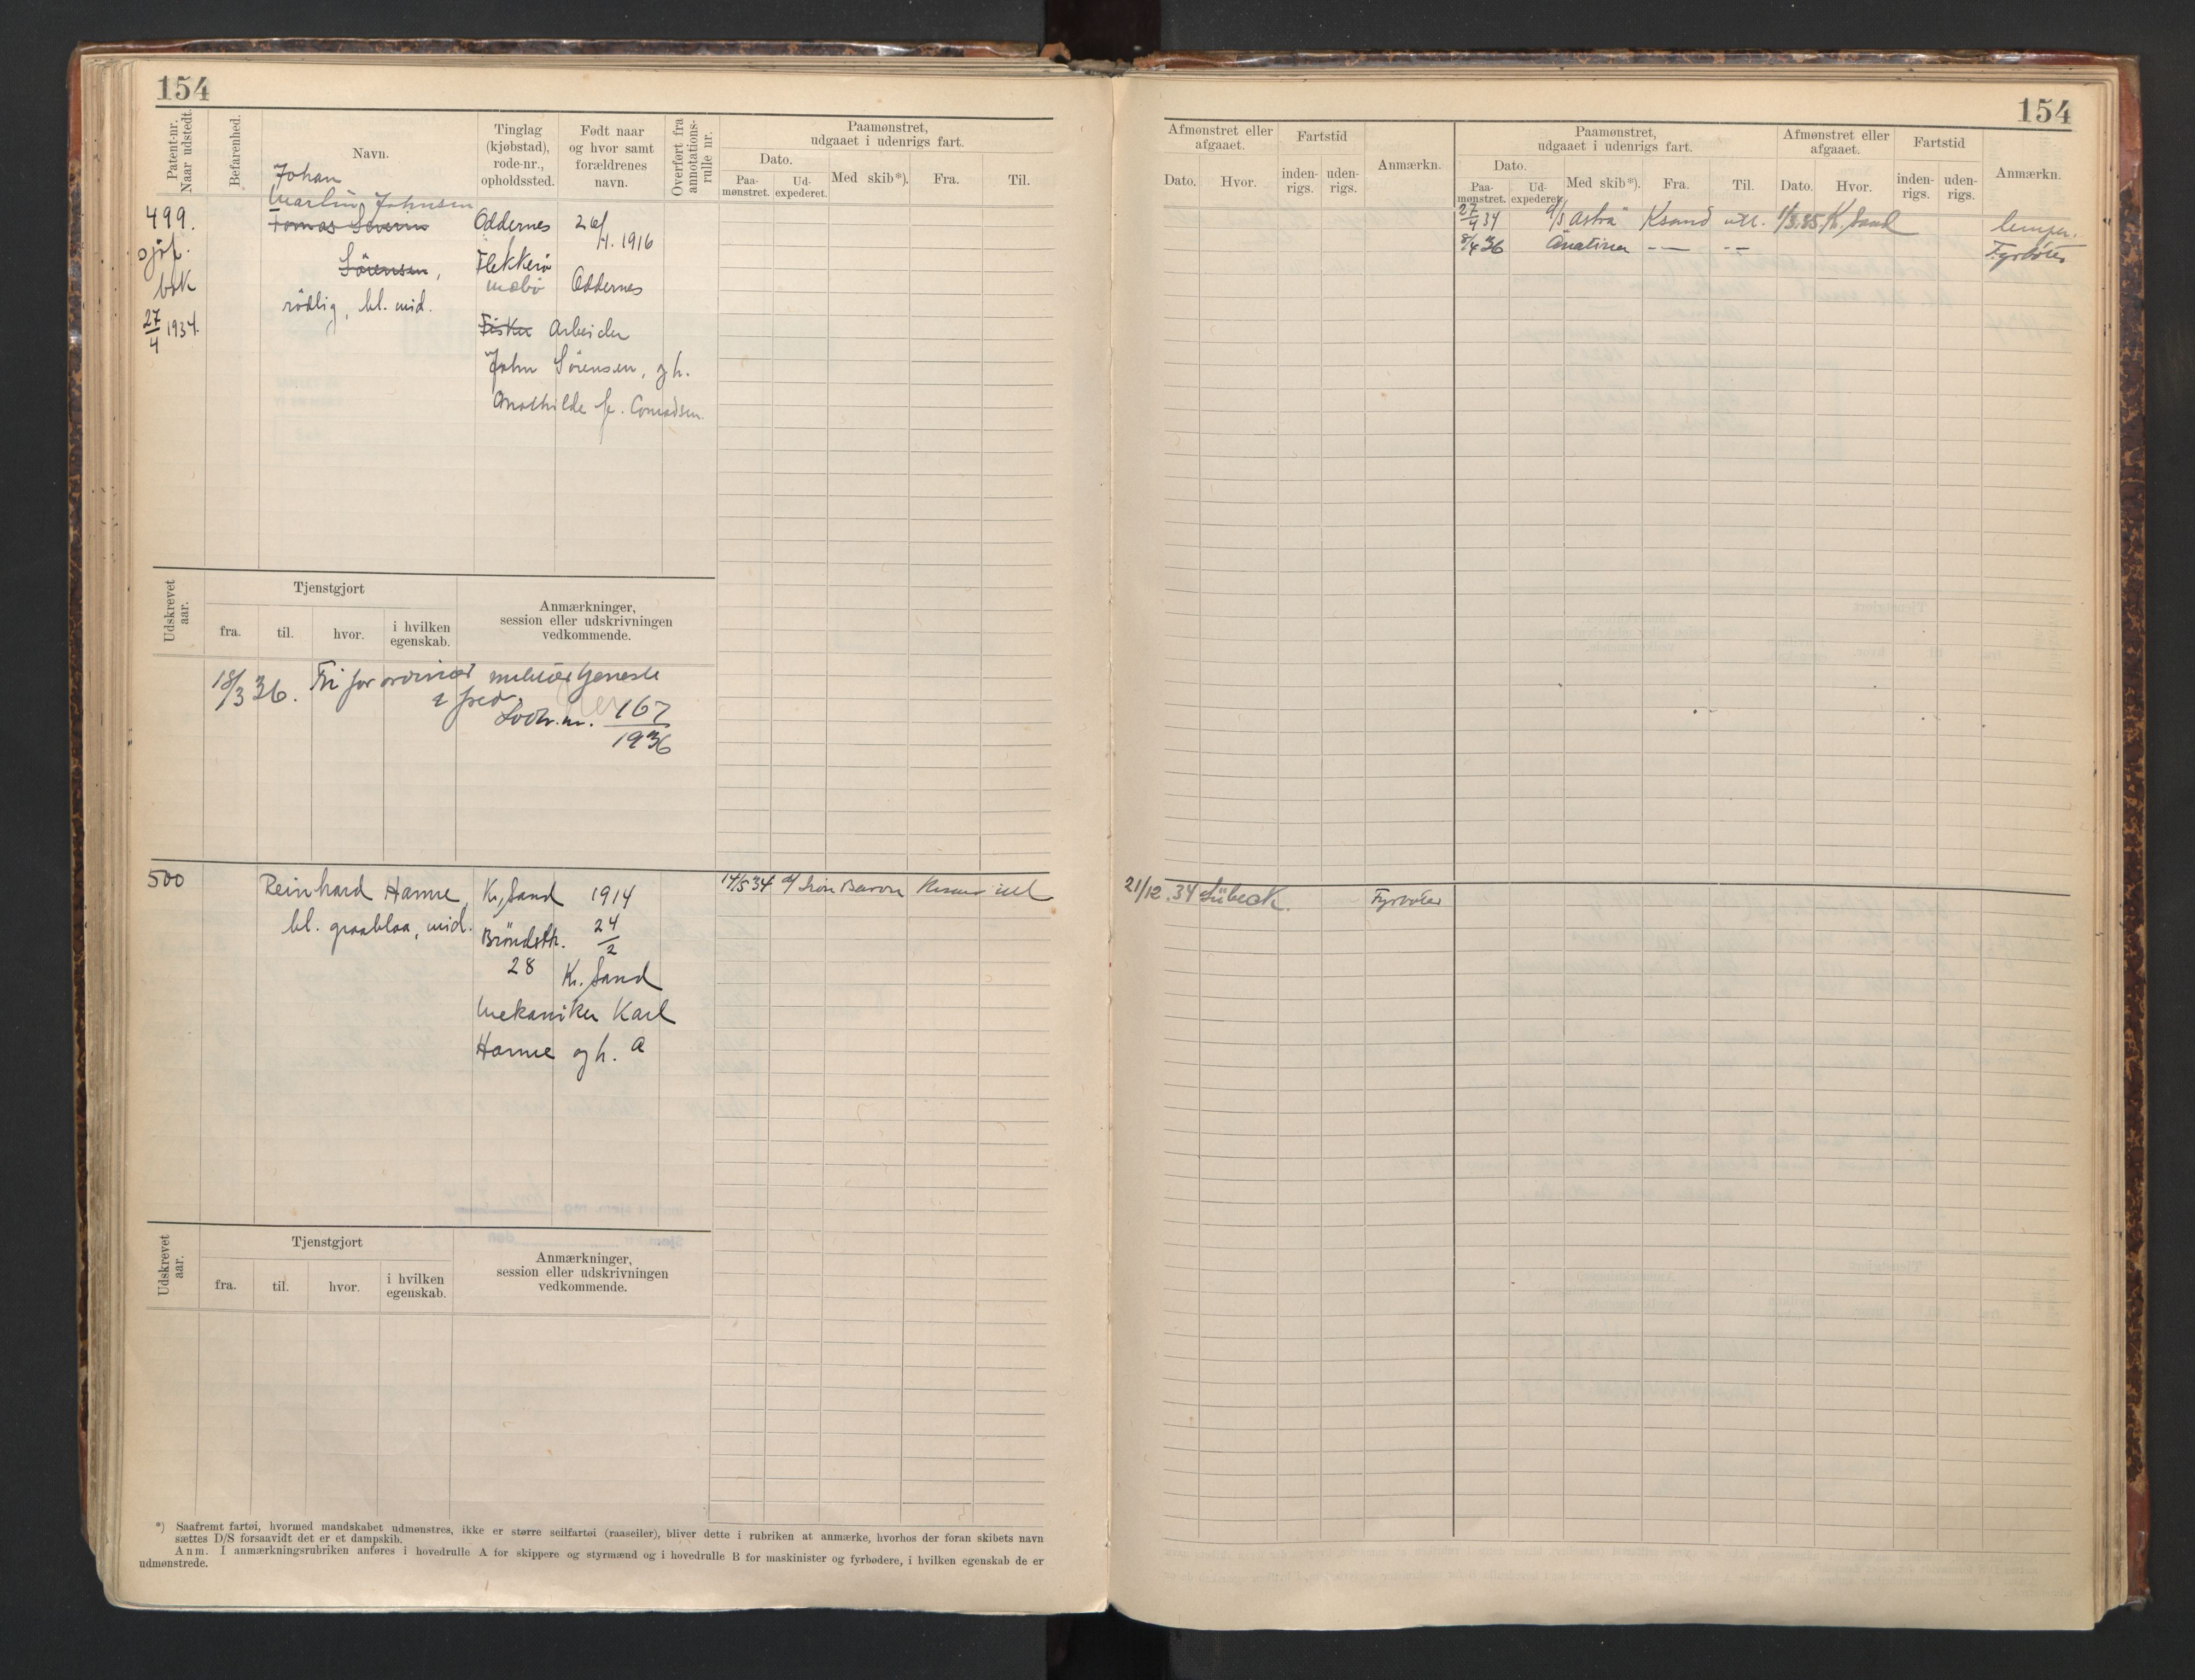 154
Patent-nr. Naar udstedt.
Befarenhed.
Navn.
Tinglag (kjøbstad), rode-nr., opholdssted.
Født naar og hvor samt forældrenes navn.
Overført fra annotations-rulle nr.
Paamønstret, udgaaet i udenrigs fart.
Dato.
Paa-mønstret.
Ud-expederet.
Med skib*).
Fra.
Til.
499.
sjöf.
bok
27/4 1934.
Johan
Martin Johnsen
Tomas Severin
Sörensen,
rödlig, bl. mid.
Oddernes 26/4. 1916
Flekkerö
Oddernes
Fisker Arbeider
John Sörensen, og h.
Mathilde f. Conradsen.
Udskrevet aar.
Tjenstgjort
fra.
til.
hvor.
i hvilken egenskab.
Anmærkninger, session eller udskrivningen vedkommende.
18/3 36. Fri for ordinær militærtjeneste
i fred.
Lodtr.nr. 167
1936
500
Reinhard Hanne,
bl. graablaa, mid.
Kr. Sand 1914
Bröndstr. 24/2
28 Kr. Sand
Mekaniker Karl
Hanne og h. A
14/5 34 d/s Iron Baron Krsand utl
Udskrevet aar.
Tjenstgjort
fra.
til.
hvor.
i hvilken egenskab.
Anmærkninger, session eller udskrivningen vedkommende.
*) Saafremt fartøi, hvormed mandskabet udmønstres, ikke er større seilfartøi (raaseiler), bliver dette i rubriken at anmærke, hvorhos der foran skibets navn
sættes D/S forsaavidt det er et dampskib.
Anm. I anmærkningsrubriken anføres i hovedrulle A for skippere og styrmænd og i hovedrulle B for maskinister og fyrbødere, i hvilken egenskab de er
udmønstrede.
154
Afmønstret eller afgaaet.
Dato.
Hvor.
Fartstid
inden-rigs.
uden-rigs.
Anmærkn.
Paamønstret, udgaaet i udenrigs fart.
Dato.
Paa-mønstret.
Ud-expederet.
Med skib*).
Fra.
Til.
Afmønstret eller afgaaet.
Dato.
Hvor.
Fartstid
inden-rigs.
uden-rigs.
Anmærkn.
27/4 34 d/s Astra Ksand utl. 1/3.35. K. Sand lemper.
8/4 36 — — — Fyrböter
21/12.34 Lübeck. Fyrböter